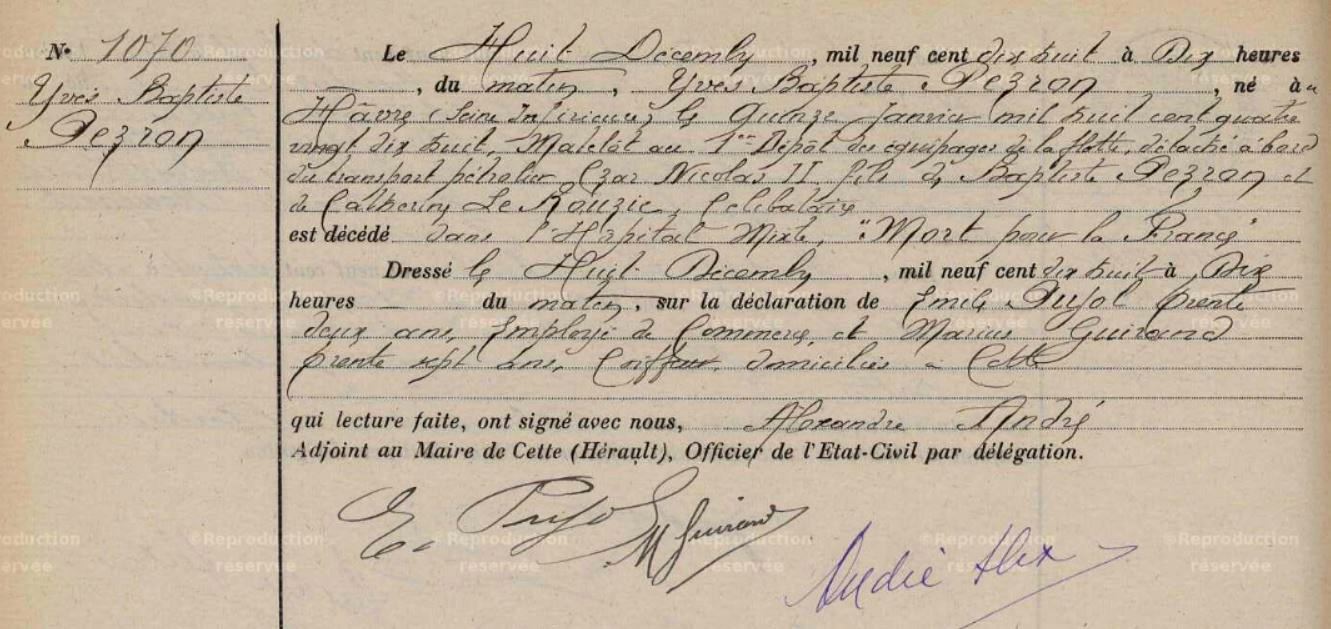 N° 1070
Yves Baptiste
Pezron
Le Huit Décembre, mil neuf cent dix huit à Dix heures
, du matin, Yves Baptiste Pezron, né à
Hâvre (Seine Inférieure) le Quinze Janvier mil huit cent quatre
vingt dix huit, Matelot au 1er Dépôt des équipages de la flotte, détaché à bord
du transport pétrolier Czar Nicolas II fils de Baptiste Pezron et
de Catherine Le Rouzic, Célibataire
est décédé dans l'Hôpital Mixte, "Mort pour la France"
Dressé le Huit Décembre, mil neuf cent dix huit à Dix
heures — du matin, sur la déclaration de Emile Pujol trente
deux ans, Employé de Commerce, et Marius Guiraud
trente sept ans, Coiffeur, domiciliés à Cette
qui lecture faite, ont signé avec nous, Alexandre André
Adjoint au Maire de Cette (Hérault), Officier de l'Etat-Civil par délégation.
E. Pujol
M Guiraud
André Alex
©Reproduction
réservée